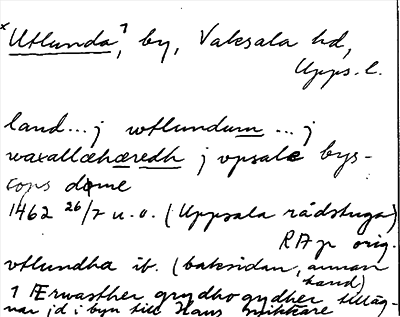 ×Utlunda˺, by, Vaksala hd,
Upps. l.
land... j wtlundum ... j
waxallæhæredh j vpsale bys-
cops døme
1462 26/7 u.o. (Uppsala rådstuga)
RAp orig.
vtlundha ib. (baksidan, annan
hand)
1 Ærwasther grydhogydher tillåg-
nar jd i byn till Hans